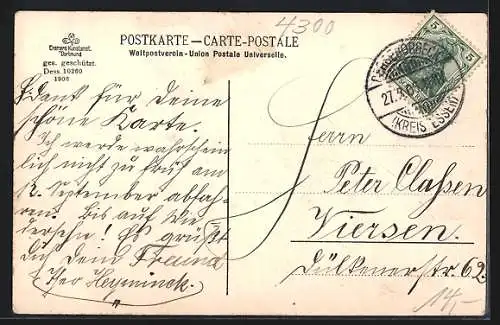 4300
POSTKARTE — CARTE-POSTALE
Weltpostverein - Union Postale Universelle.
Dortmund
ges. geschützt.
Dess. 10260
1906
5
5
27.8.
(KREIS ESSEN)
Dank für Deine
schöne Karte.
Ich werde wahrschein
lich nicht zu früh am
12. September abfah
ren. Bis auf Wie
dersehn! Es grüßt
Dich dein Freund
Herrn
Peter Classen
Viersen.
Dülkenerstr. 62.
14,-